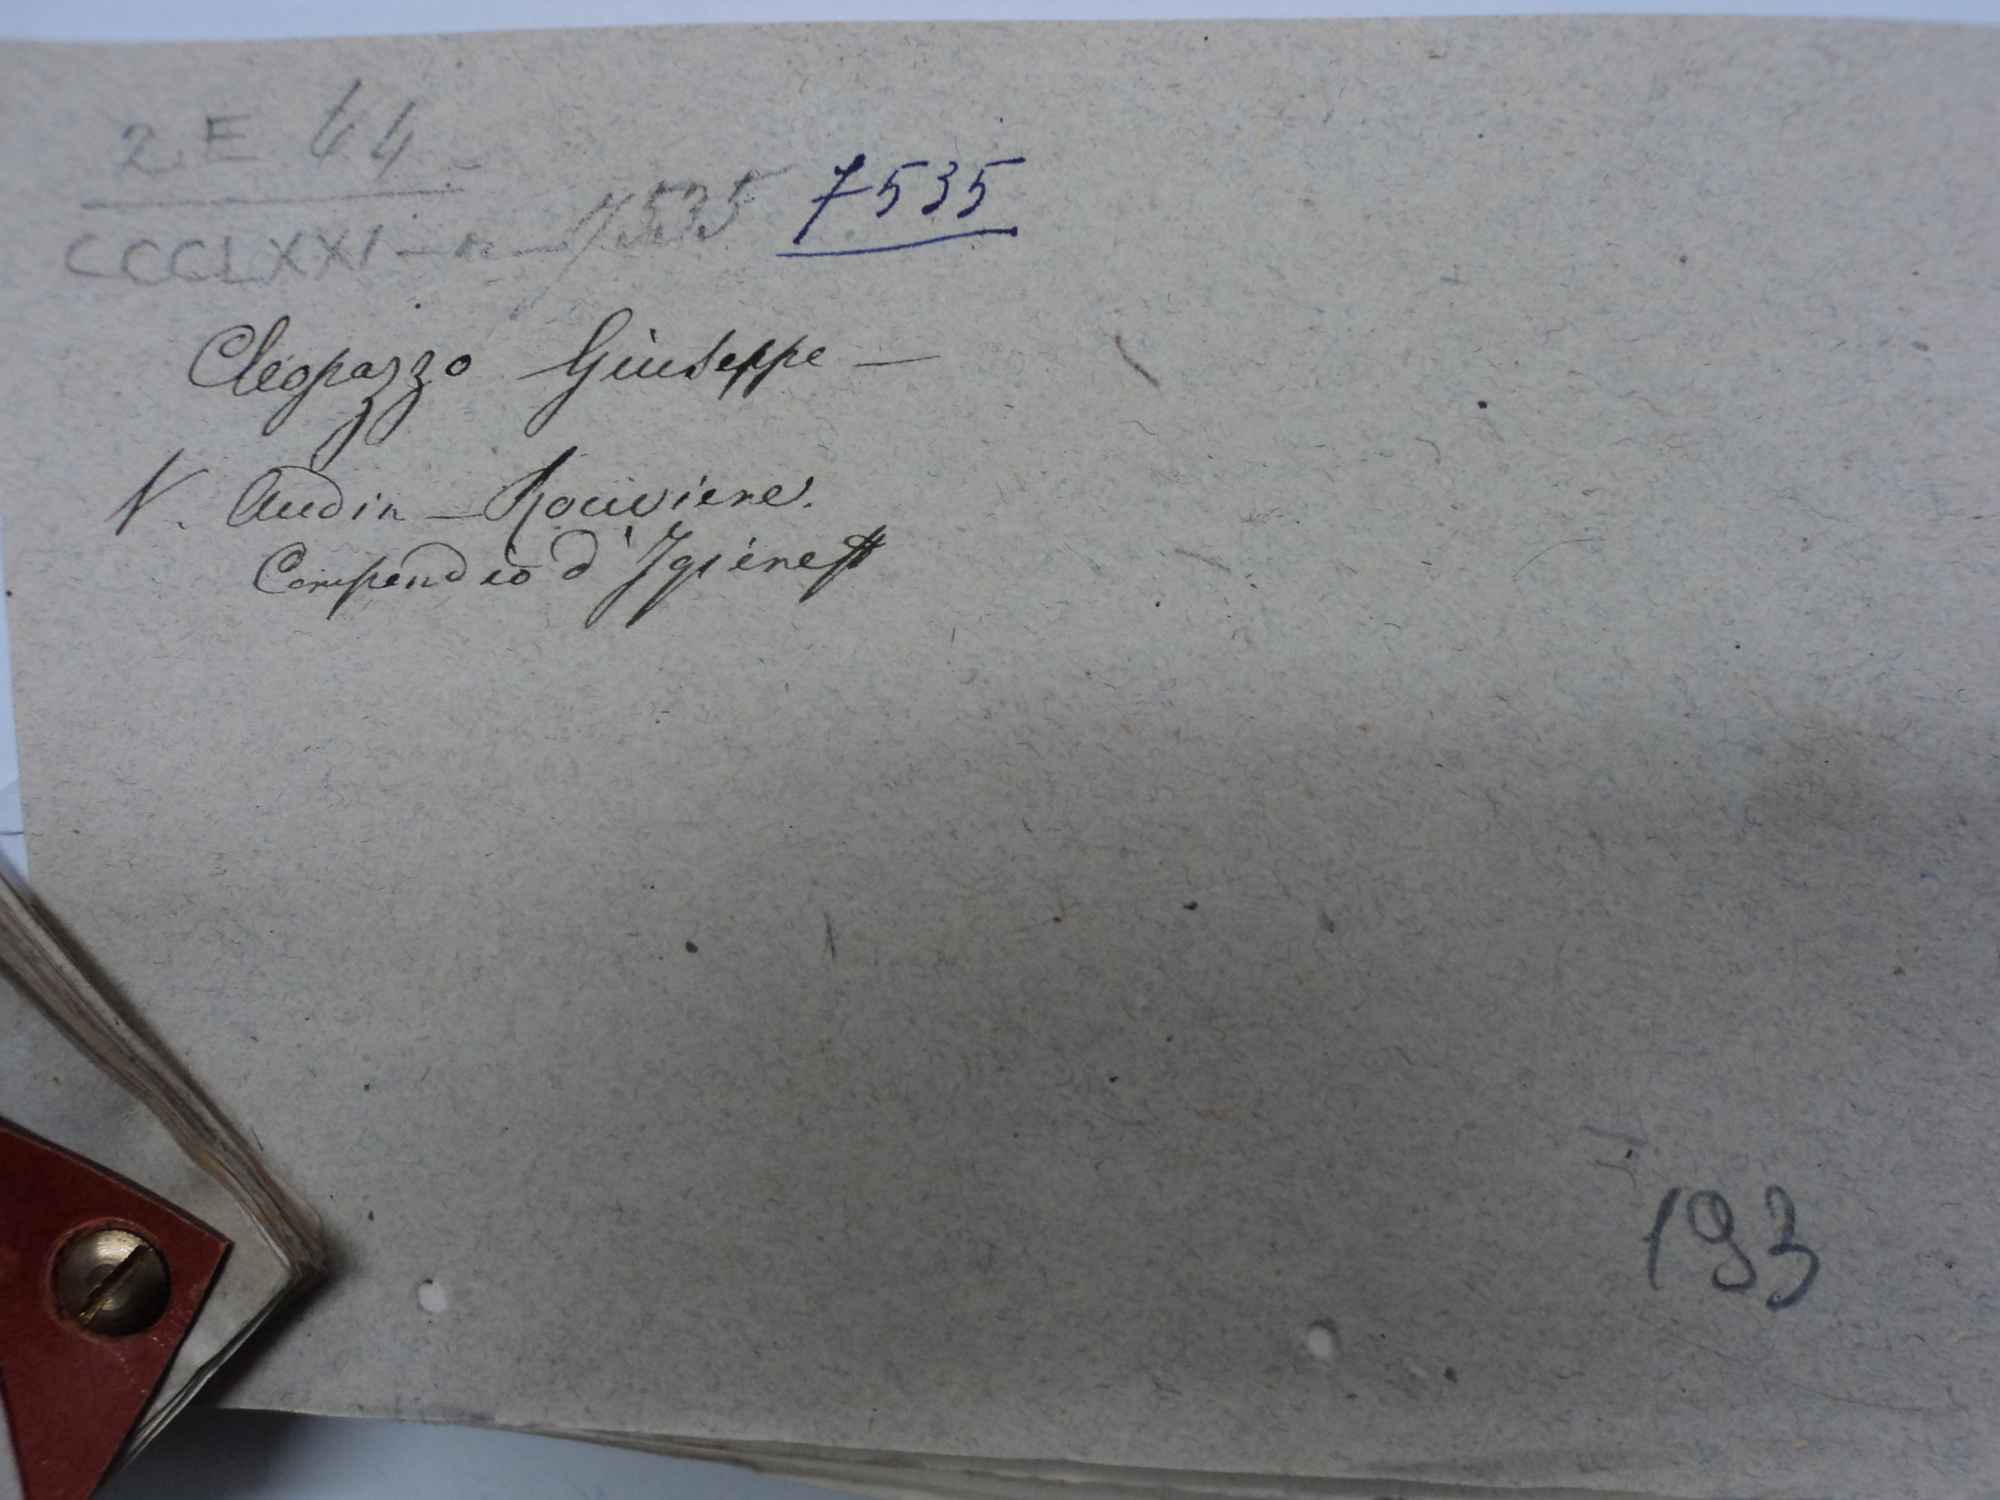 2 E 44
CCCLXXI - n - 7535 7535
Cleopazzo Giuseppe -
V. Audin - Rouviere.
Compendio d'Igiene
193